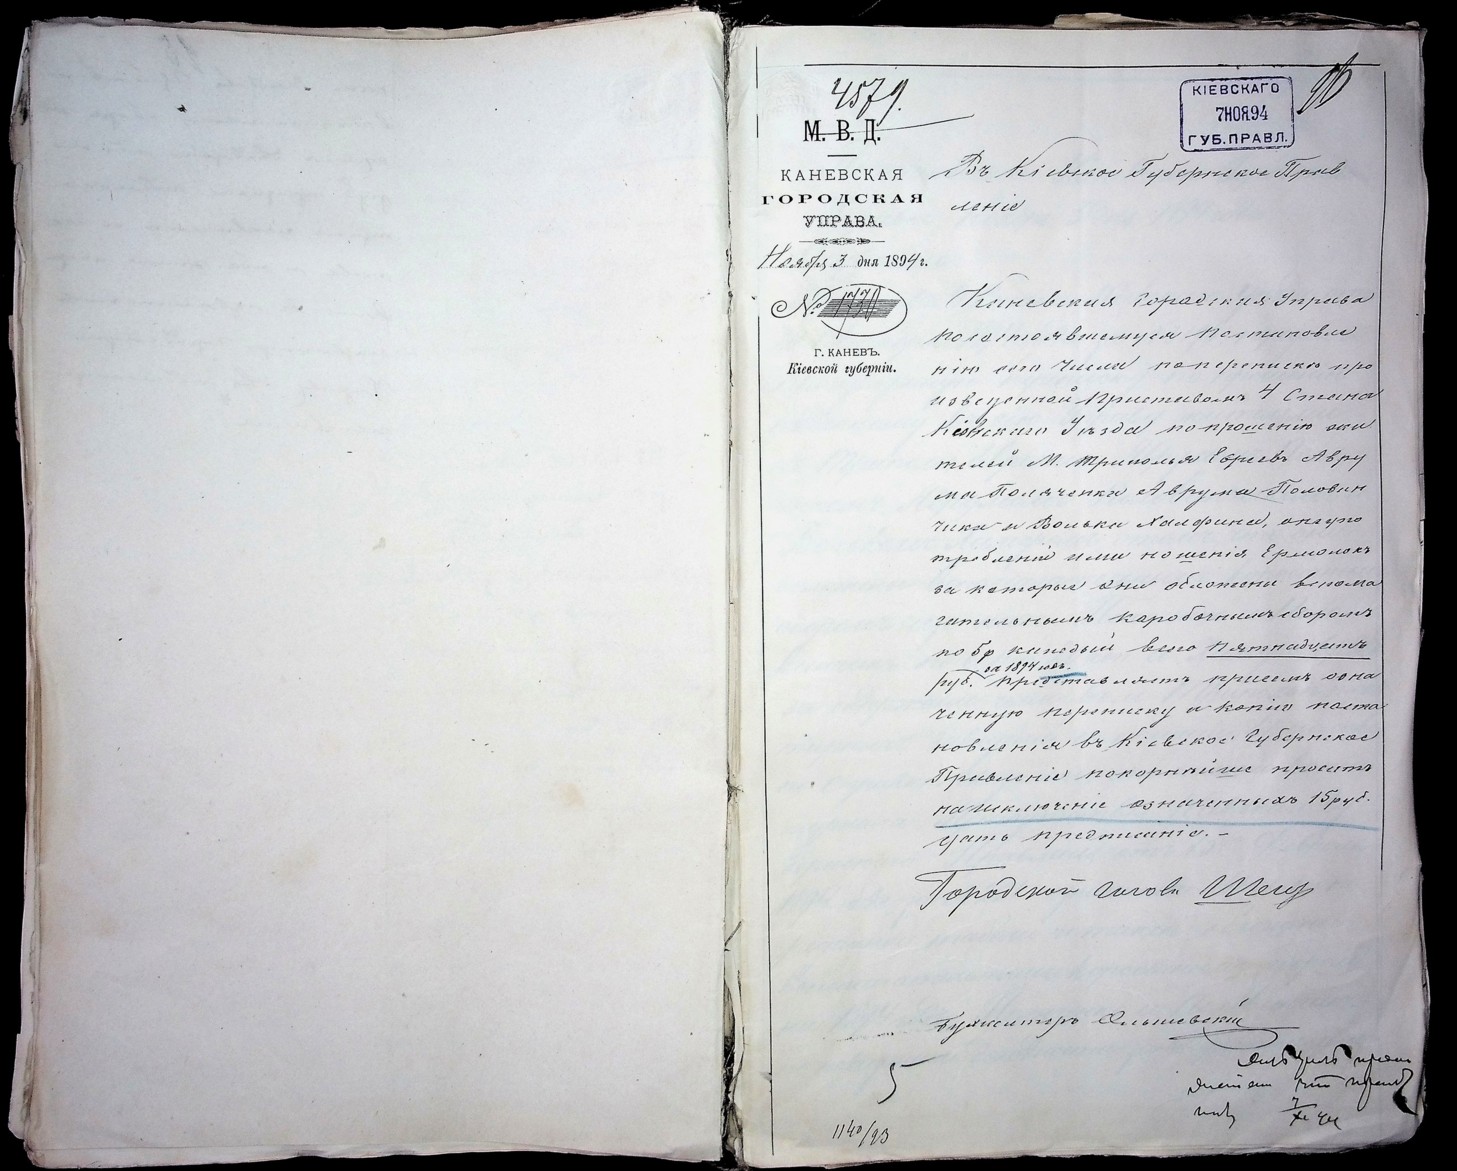 4579.
М. В. Д.
КАНЕВСКАЯ
ГОРОДСКАЯ
УПРАВА.
Ноября 3 дня 1894 г.
№ 1770
Г. КАНЕВЪ.
Кіевской губерніи.
КІЕВСКАГО
7 НОЯ 94
ГУБ. ПРАВЛ.
Въ Кіевское Губернское Прав
леніе
Каневская Городская Управа
по состоявшемуся постановле
нію сего числа по переписке про
изведенной Приставомъ 4 Стана
Кіевскаго Уезда по прошенію жи
телей М. Триполья Евреевъ Авру
ма Поляченка Аврума Половин
чика и Волька Халфина, о не упо
требленіи ими ношенія Ермолокъ
за которые они обложены вспома
гательнымъ коробочнымъ сборомъ
по 5р каждый всего пятнадцать
за 1894 годъ.
руб. представляетъ присемъ озна
ченную переписку и копію поста
новленія въ Кіевское Губернское
Правленіе покорнейше проситъ
на исключеніе означенныхъ 15 руб.
дать предписаніе. –
Городской Голова
Бухгалтеръ Ольшевскій
5
1140/93